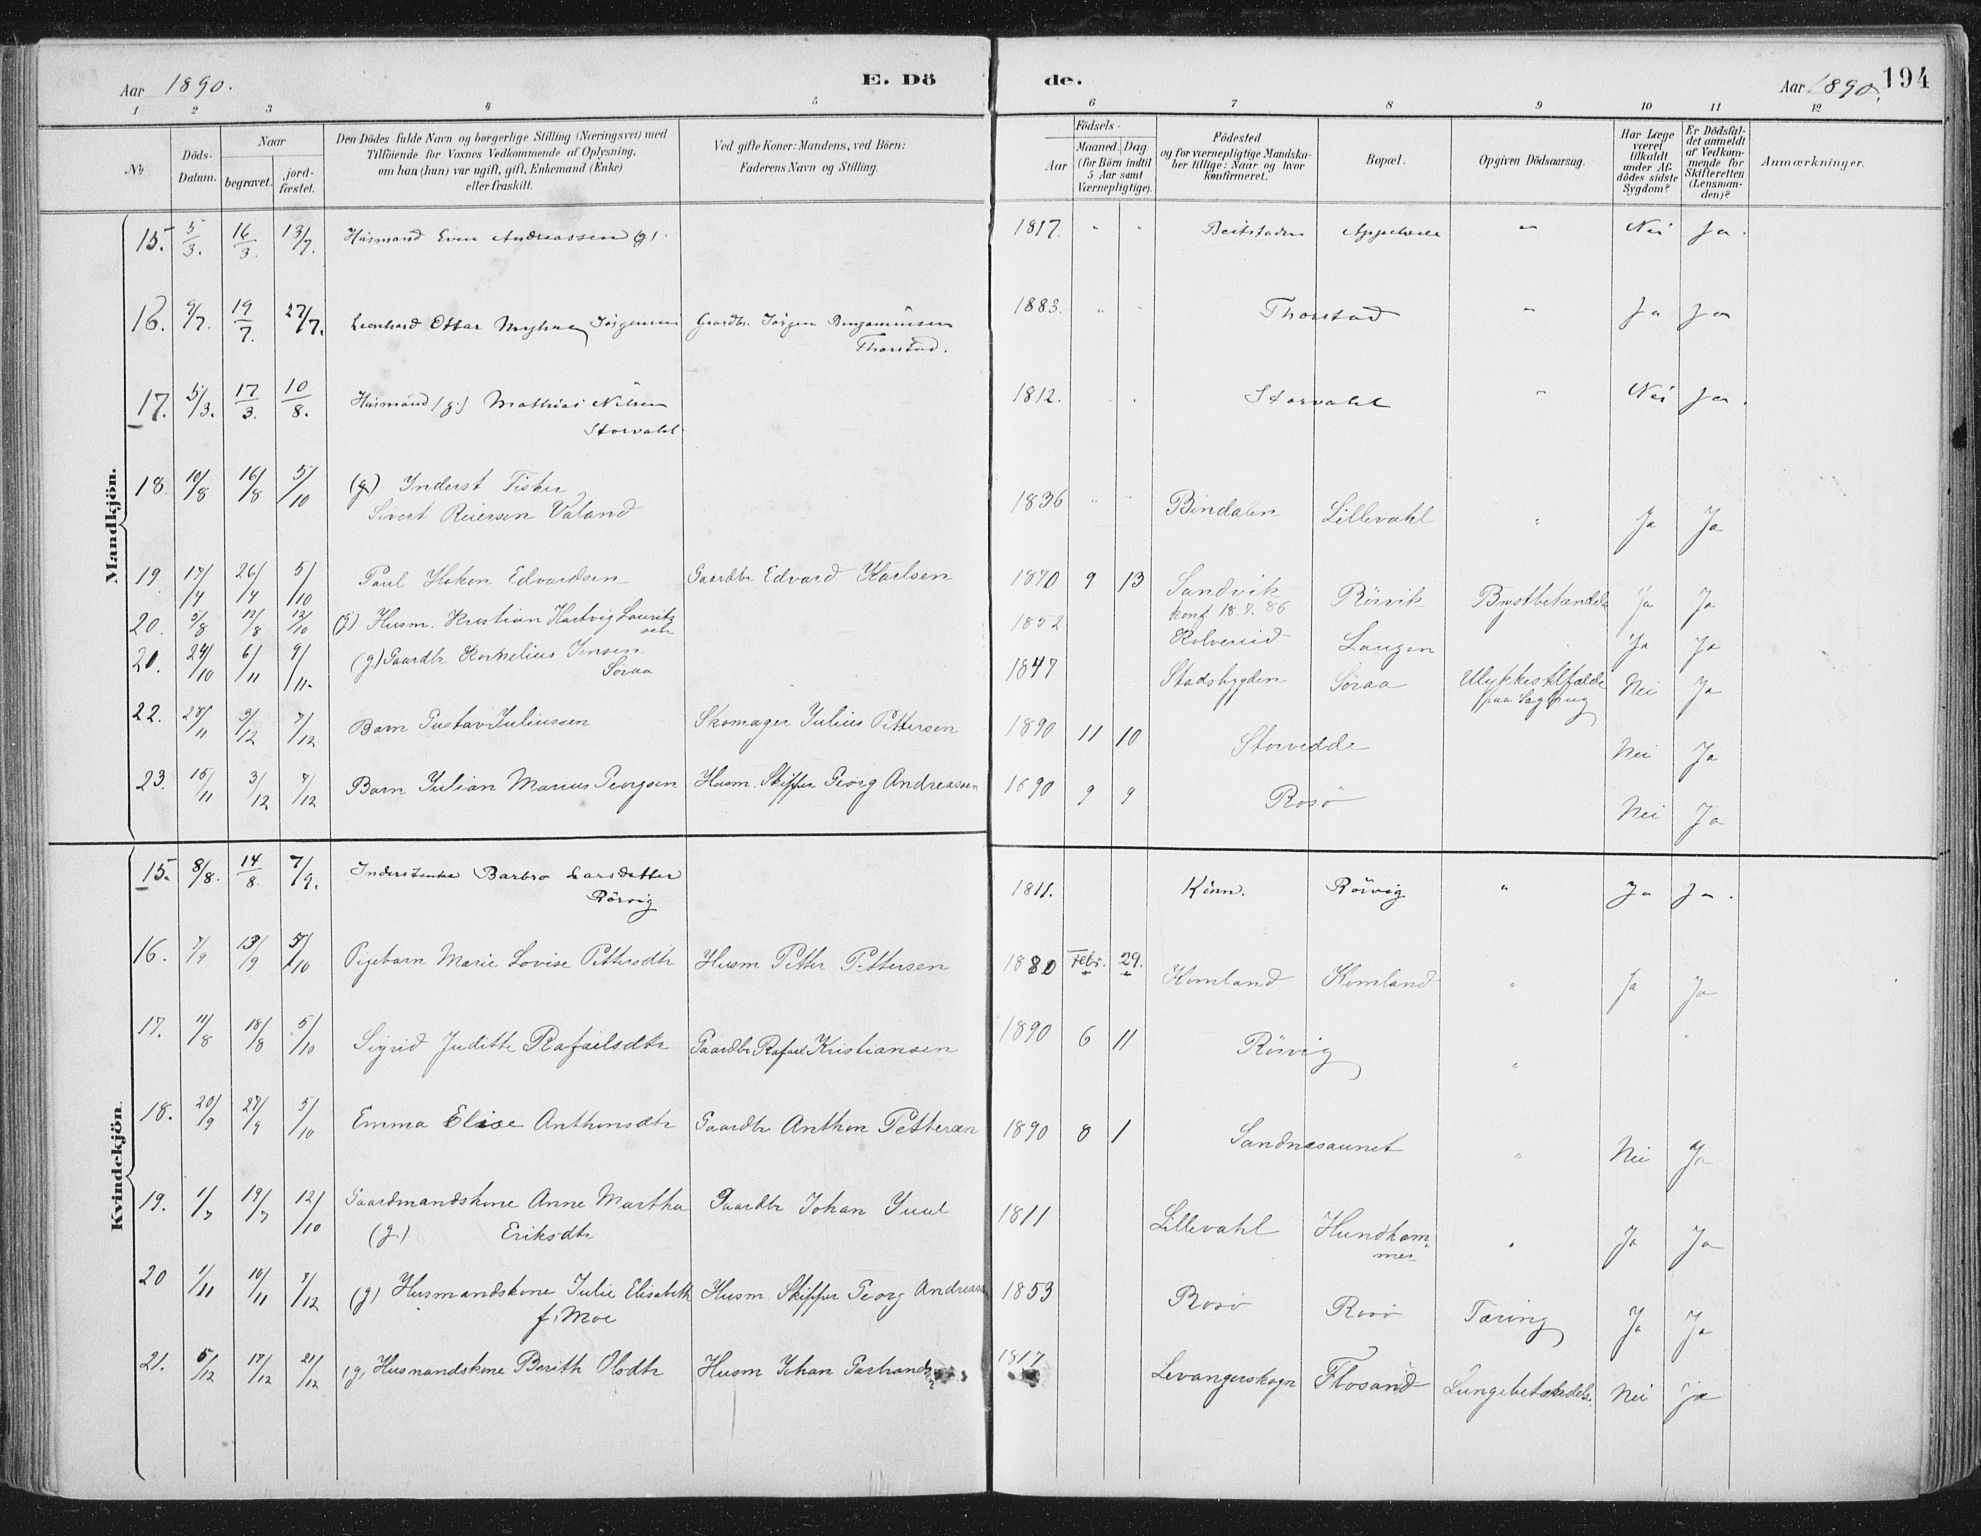 Aar 1890.
E. Dö
de.
Aar 1890.
194
1 2 3 4 5 6 7 8 9 10 11 12
№
Döds-Datum.
Naar begravet. jordfæstet.
Den Dödes fulde Navn og borgerlige Stilling (Næringsvei) med Tilföiende for Voxnes Vedkommende af Oplysning, om han (hun) var ugift, gift, Enkemand (Enke) eller fraskilt.
Ved gifte Koner: Mandens, ved Börn: Faderens Navn og Stilling.
Födsels- Aar Maaned. Dag. (for Börn indtil 5 Aar samt Værnepligtige).
Födested og for værnepligtige Mandskaber tillige: Naar og hvor konfirmeret.
Bopæl.
Opgiven Dödsaarsag.
Har Læge været tilkaldt under Afdödes sidste Sygdom?
Er Dödsfaldet anmeldt af Vedkommende for Skifteretten (Lensmanden)?
Anmærkninger.
Mandkjön.
15. 5/3. 16/3. 13/7. Husmand Even Andreassen (g). 1817. " " Beitstaden " Nei Ja.
16. 9/7. 19/7. 27/7. Leonhard Ottar Jörgensen Gaardbr. Jörgen Benjaminsen Thorstad. 1883. " " Thorstad " Ja Ja
17. 5/3. 17/3. 10/8. Husmand (g.) Mathias Nilsen Storvahl. 1812. " " Storvahl " Nei Ja.
18. 10/8 16/8 5/10 (g) Inderst Fisker Sivert Reiersen Valand 1836 " " Bindalen Lillevahl " Ja Ja
19. 17/4 26/4 5/10 Paul Hakon Edvardsen Gaardbr Edvard Karlsen 1870 9 13 Sandvik konf 18.7.86 Rörvik Brystbetændelse Ja Ja
20. 5/8 12/8 12/10 (g) Husm. Kristian Hartvig Lauritzsen 1852 Kolvereid Laugen Ja Ja
20. 24/10 6/11 9/11. (g) Gaardbr Kornelius Jensen Söraa 1847 Stadsbygden Söraa Ulykkestilfælde paa Sagbrug Nei Ja
22. 28/11 3/12 7/12 Barn Gustav Juliussen Skomager Julius Pettersen 1890 11 10 Storvedde Nei Ja
23. 15/11 3/12 7/12 Barn Julian Marius Georgsen Husm. Skipper Georg Andreassen 1890 9 9 Rosö Nei Ja
Kvindekjön.
15. 8/8. 14/8. 7/9. Inderstenke Barbro Larsdatter Rörvig 1811. Kinn. Rörvig " Ja Ja.
16. 7/9 13/9 5/10 Pigebarn Marie Lovise Pettersdtr Husm Petter Pettersen 1880 Febr. 29. Komland Komland " Ja Ja
17. 11/8 18/8 5/10 Sigrid Judithe Rafaelsdtr Gaardbr Rafael Kristiansen 1890 6 11 Rörvig "
18. 20/9 27/9 5/10 Emma Elise Anthonsdtr Gaardbr Anthon Pettersen 1890 8 1 Sandnesaunet " Nei Ja
19. 1/7 19/7 12/10 Gaardmandskone Anne Martha (g.) Eriksdtr Gaardbr Johan Juul 1811 Lillevahl Hundhammer " Ja Ja
20 1/11 10/11 7/12 (g) Husmandskone Julie Elisabeth f. Moe Husm. Skipper Georg Andreassen 1853 Rosö Rosö Tæring Ja Ja
21. 5/12 17/12 21/12 (g) Husmandskone Berith Olsdtr Husm Johan 1817 Levangerskogn Flosand Lungebetændelse. Nei Ja